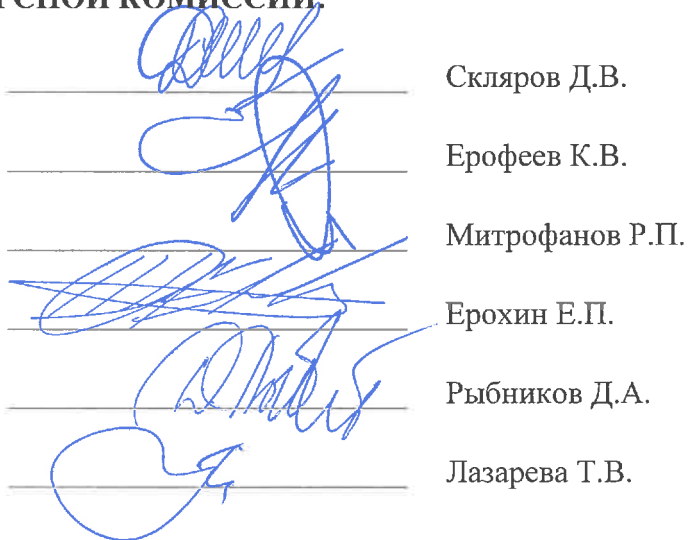 комиссии:
Скляров Д.В.
Ерофеев К.В.
Митрофанов Р.П.
Ерохин Е.П.
Рыбников Д.А.
Лазарева Т.В.